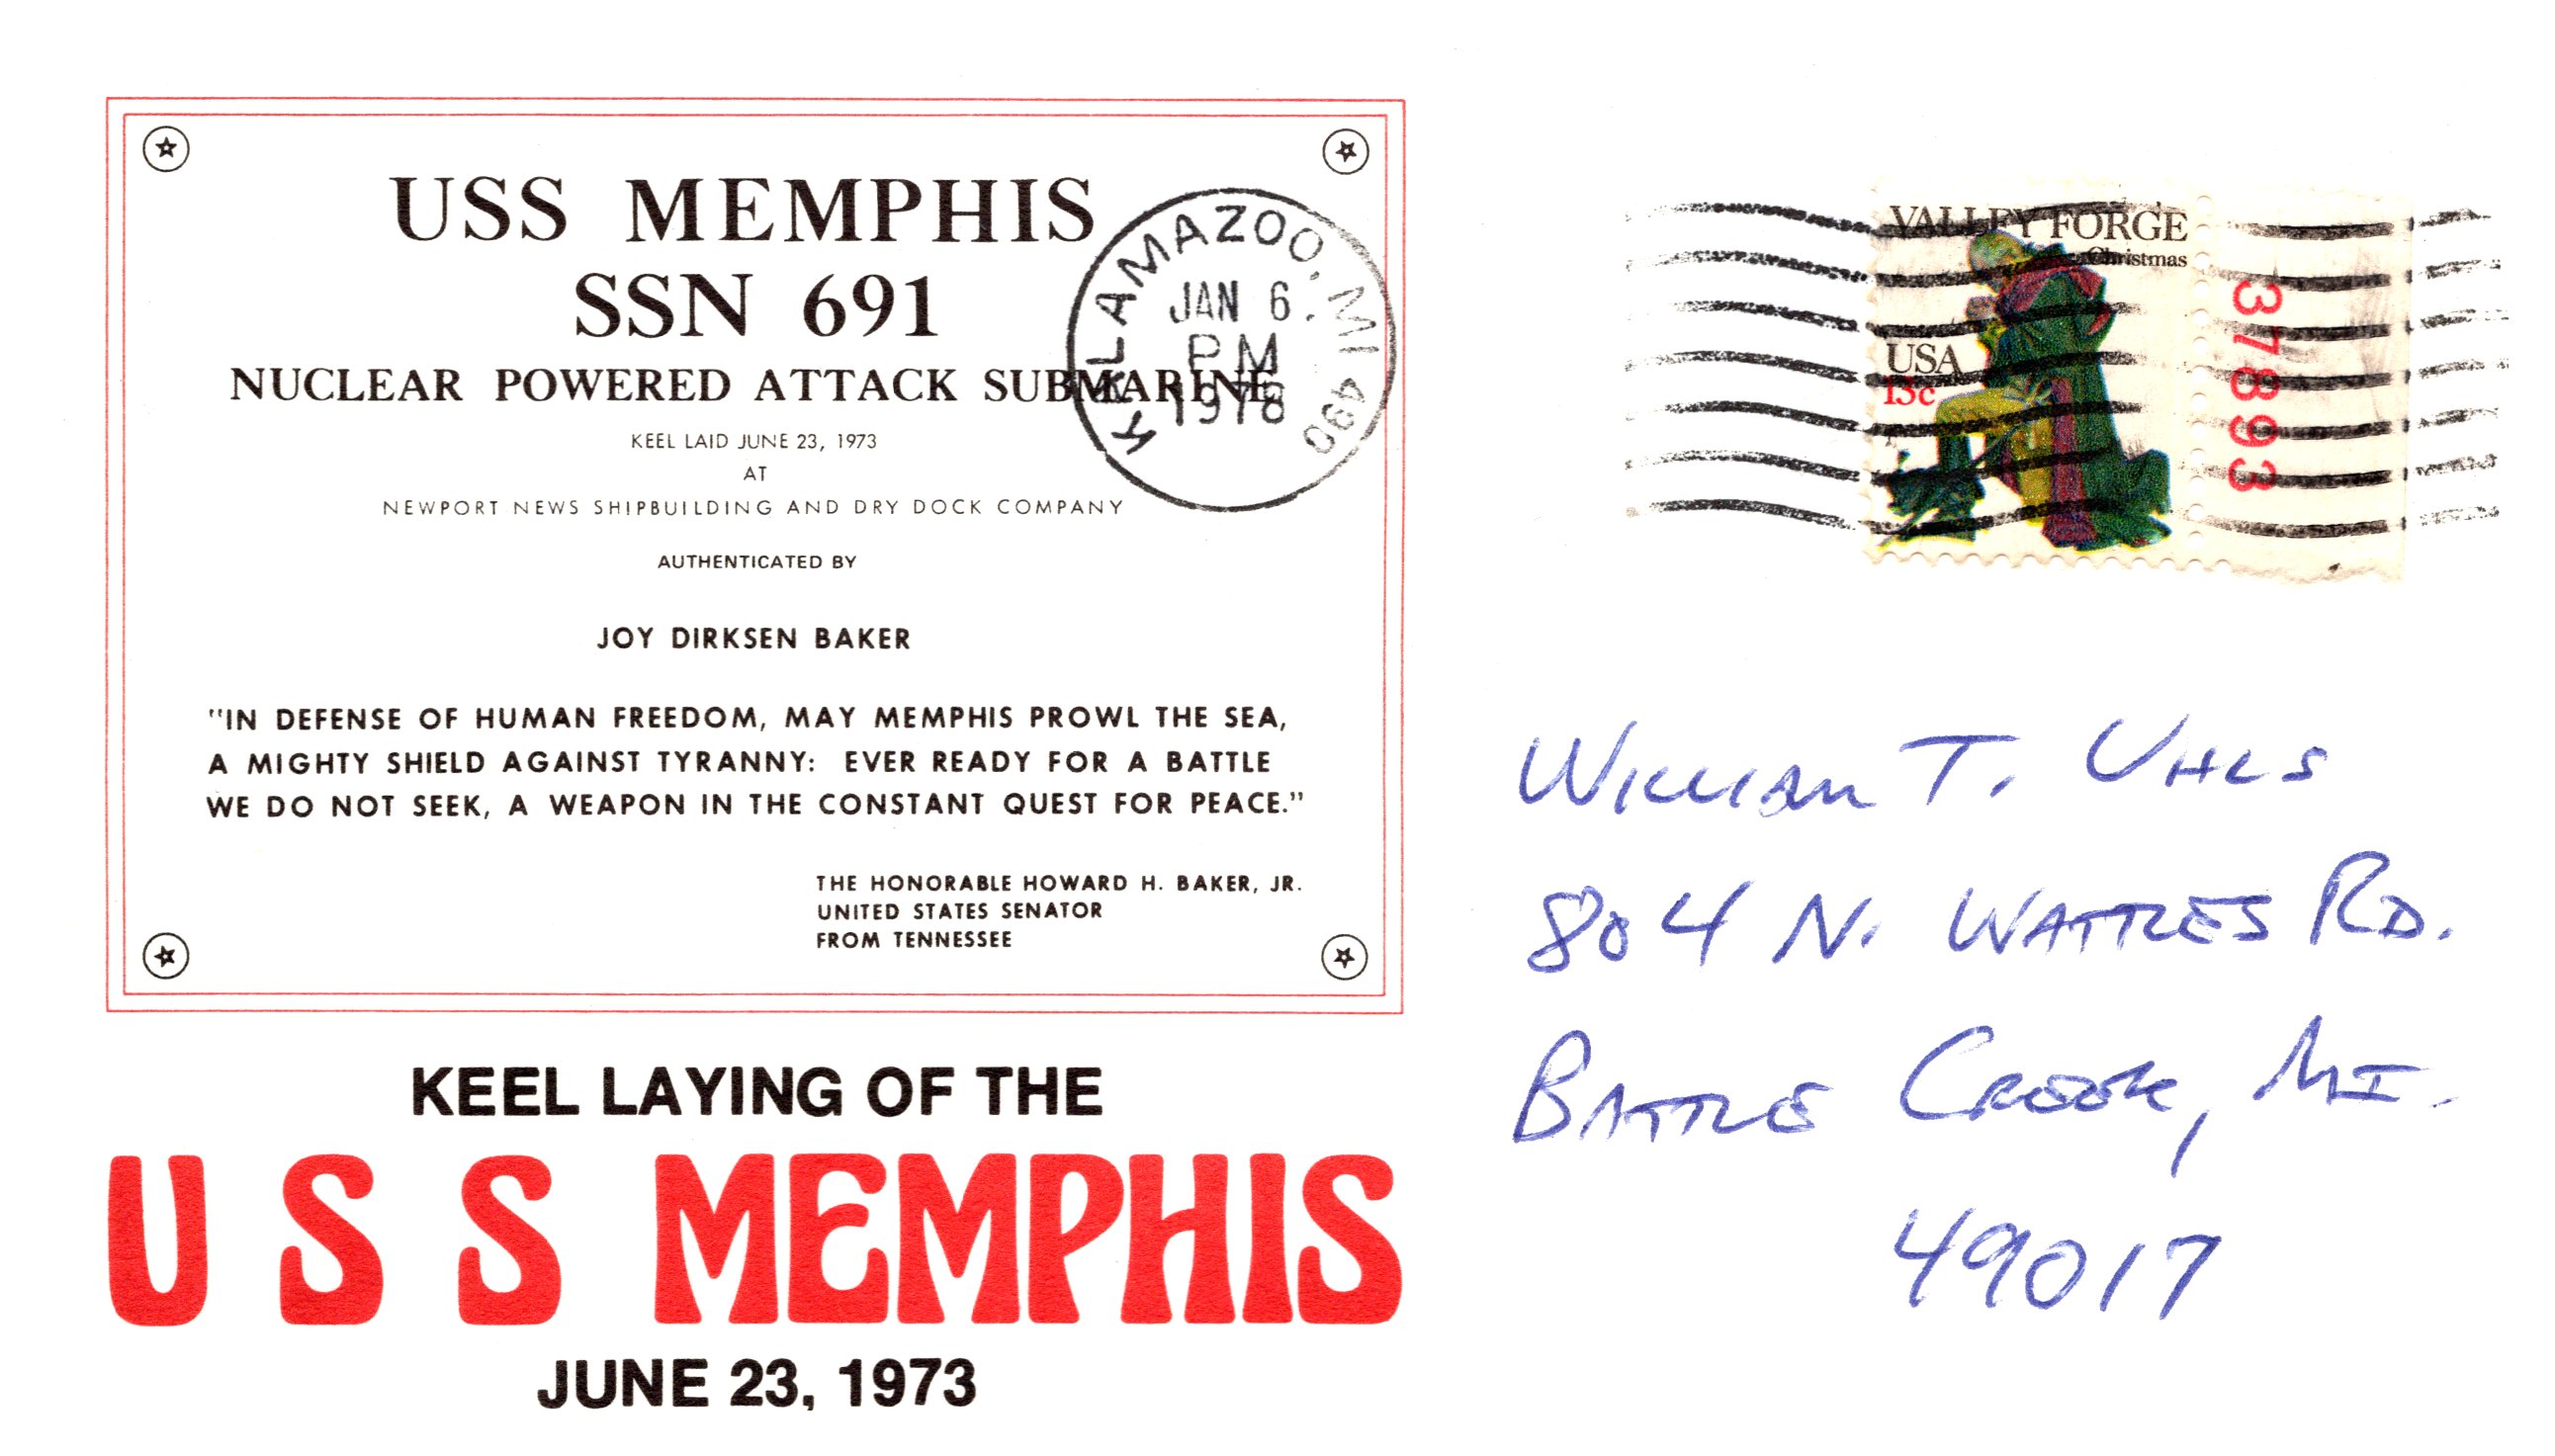 USS MEMPHIS
SSN 691
NUCLEAR POWERED ATTACK SUBMARINE
KEEL LAID JUNE 23, 1973
AT
NEWPORT NEWS SHIPBUILDING AND DRY DOCK COMPANY
AUTHENTICATED BY
JOY DIRKSEN BAKER
"IN DEFENSE OF HUMAN FREEDOM, MAY MEMPHIS PROWL THE SEA,
A MIGHTY SHIELD AGAINST TYRANNY: EVER READY FOR A BATTLE
WE DO NOT SEEK, A WEAPON IN THE CONSTANT QUEST FOR PEACE."
THE HONORABLE HOWARD H. BAKER, JR.
UNITED STATES SENATOR
FROM TENNESSEE
KEEL LAYING OF THE
USS MEMPHIS
JUNE 23, 1973
KALAMAZOO, MI 490
JAN 6
PM
1978
VALLEY FORGE
Christmas
USA
13c
37893
WILLIAM T. UHLS
804 N. WATTLES RD.
BATTLE CREEK, MI.
49017